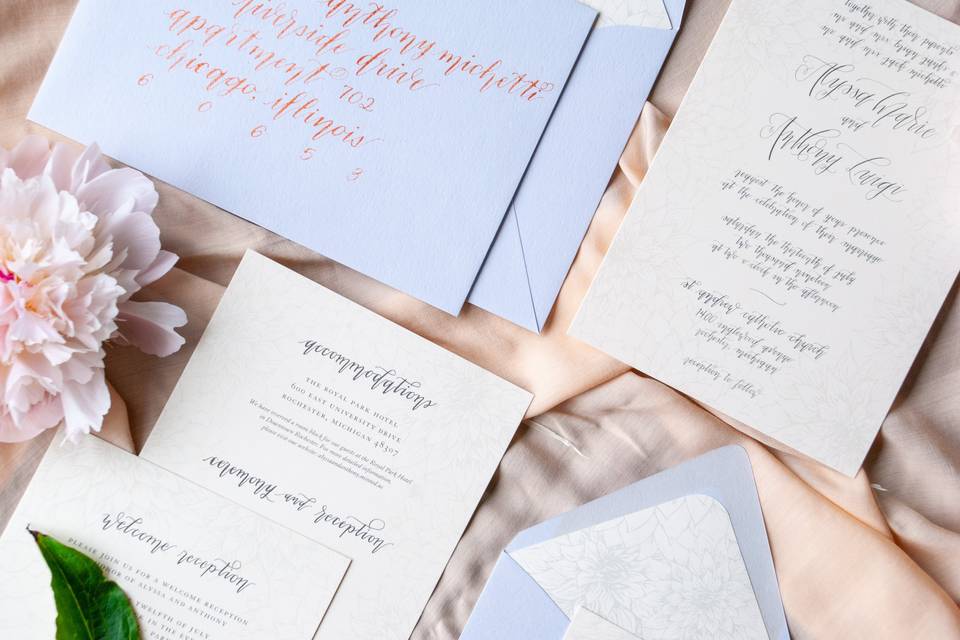 anthony michetti
riverside drive
apartment 702
chicago, illinois
6 0 6 5 3
together with their parents
mr and mrs brian
mr and mrs michetti
Alyssa Marie
and
Anthony Luigi
request the honor of your presence
at the celebration of their marriage
saturday the thirteenth of july
two thousand nineteen
at two o'clock in the afternoon
st andrew catholic church
1400 inglewood avenue
rochester, michigan
reception to follow
accommodations
THE ROYAL PARK HOTEL
600 EAST UNIVERSITY DRIVE
ROCHESTER, MICHIGAN 48307
We have reserved a room block for our guests at the Royal Park Hotel
in Downtown Rochester. For more detailed information,
please visit our website: alyssaandanthony.minted.us
ceremony and reception
welcome reception
PLEASE JOIN US FOR A WELCOME RECEPTION
HONOR OF ALYSSA AND ANTHONY
TWELFTH OF JULY
IN THE